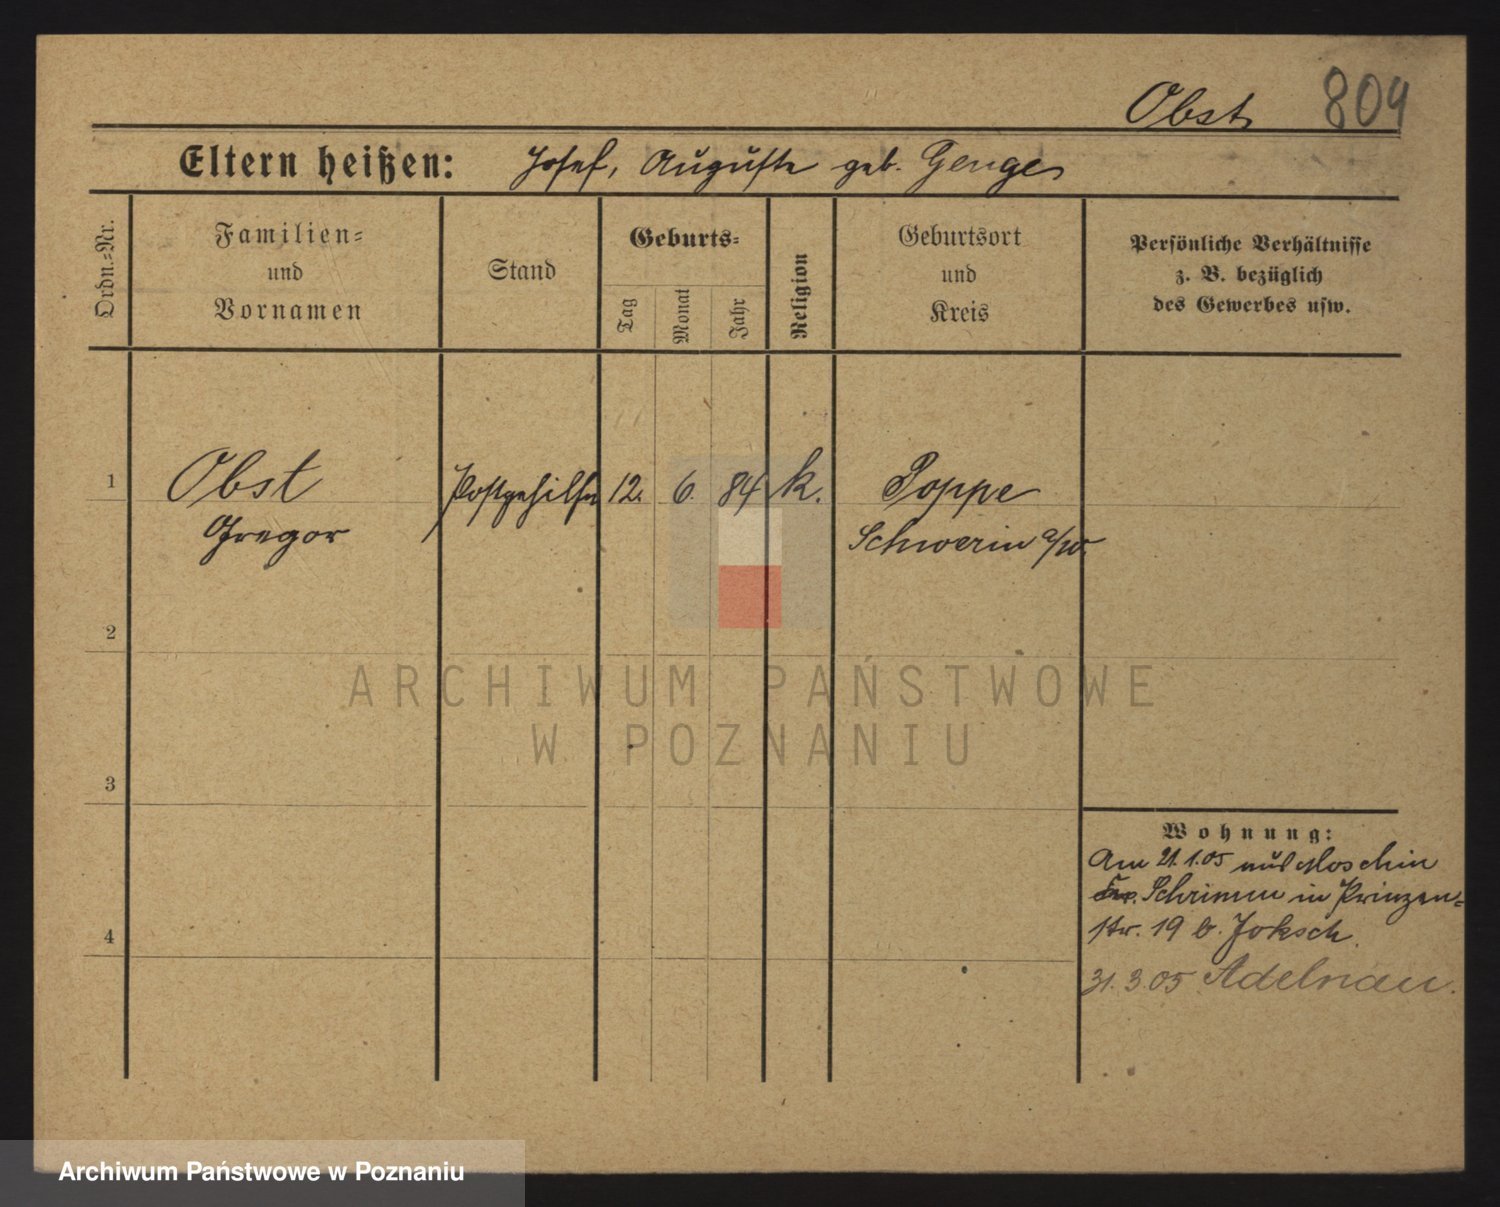 Obst 804
Eltern heißen: Josef, Auguste geb. Genge
Ordn.=Nr.
Familien=
und
Vornamen
Stand
Geburts=
Tag
Monat
Jahr
Religion
Geburtsort
und
Kreis
Persönliche Verhältnisse
z. B. bezüglich
des Gewerbes usw.
1 Obst Postgehilfe 12. 6. 84 k. Poppe
Gregor Schwerin a/W.
2
3
4
Wohnung:
Am 21.1.05 aus Moschin
Kr. Schrimm in Prinzen=
str. 19 b. Joksch
31.3.05 Adelnau.
ARCHIWUM PAŃSTWOWE
W POZNANIU
Archiwum Państwowe w Poznaniu